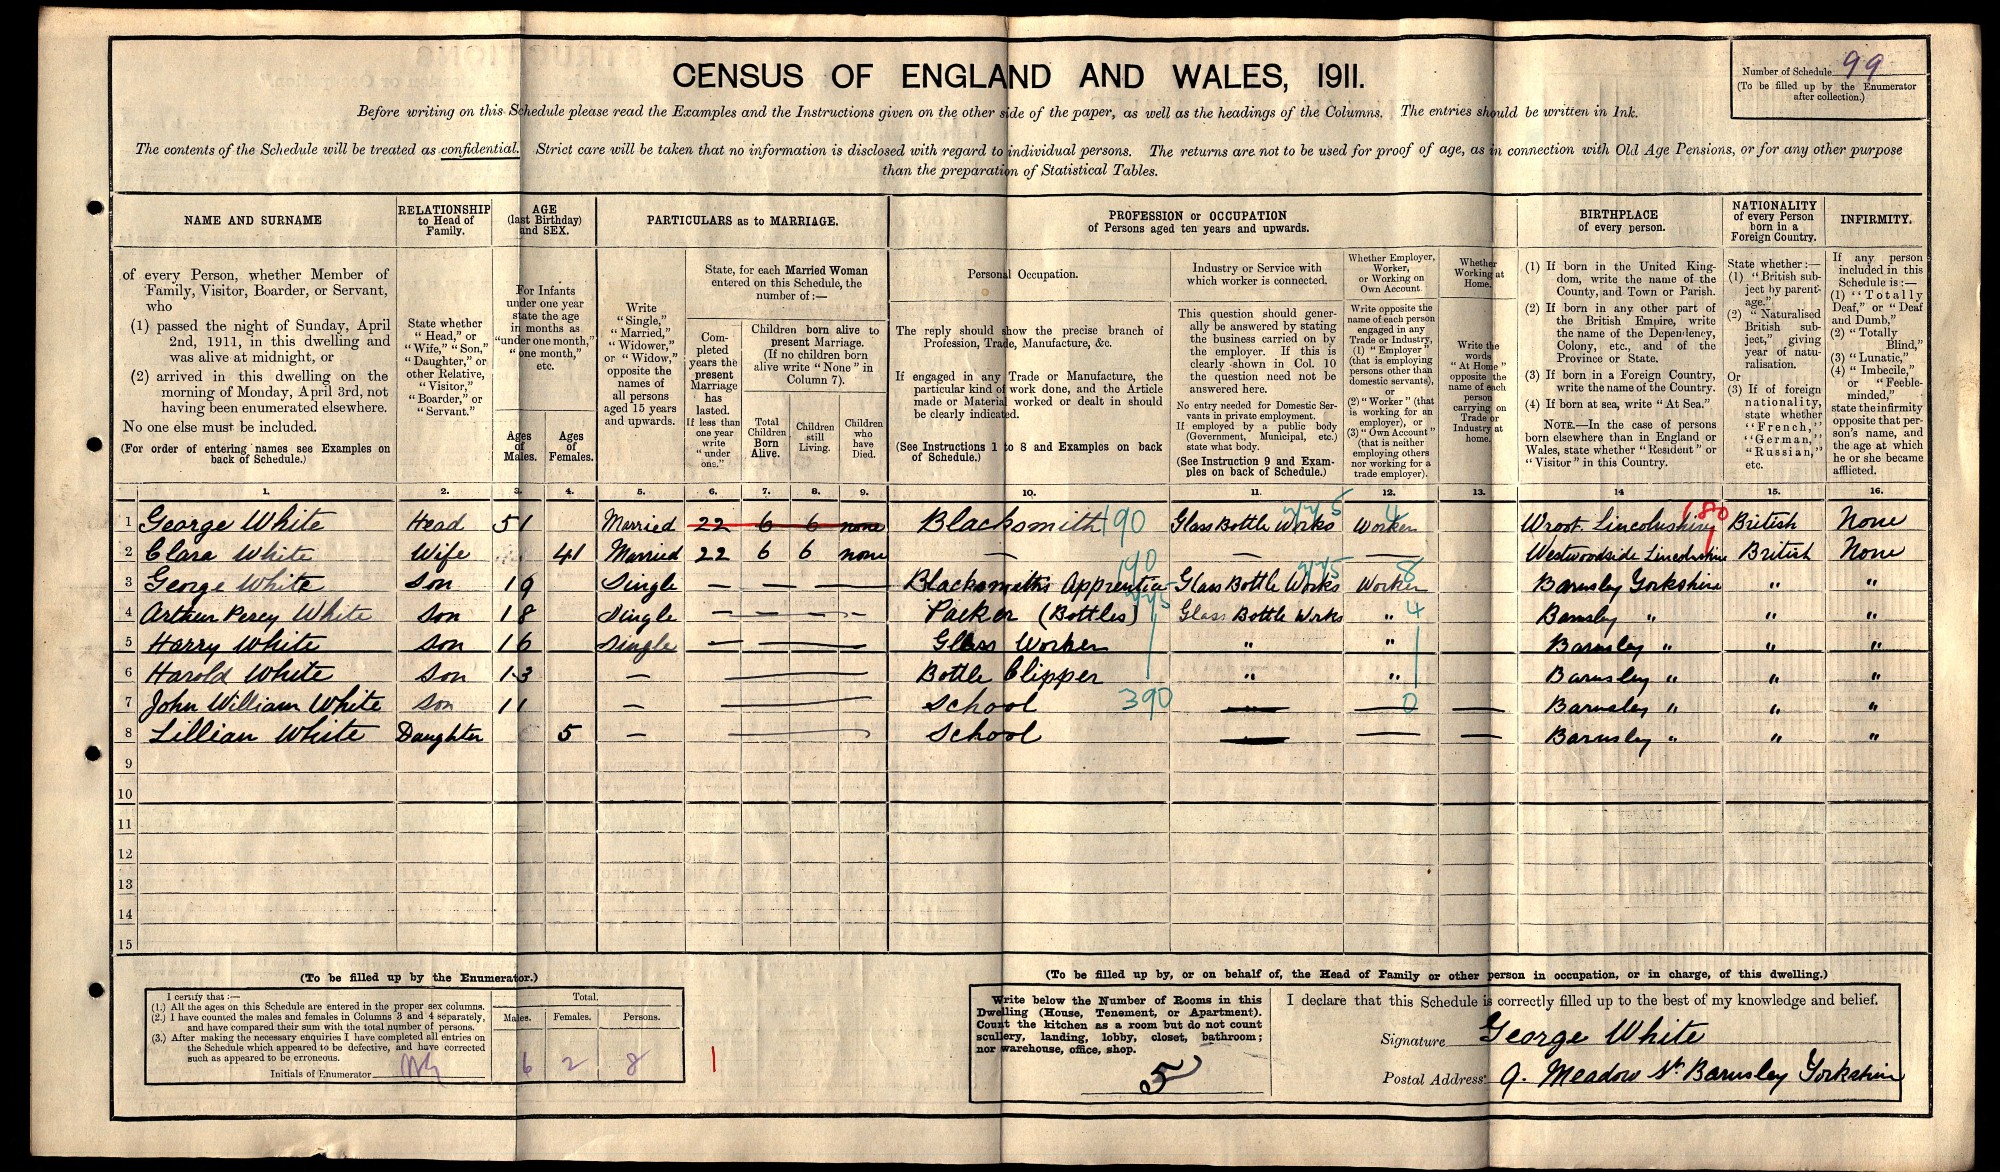 CENSUS OF ENGLAND AND WALES, 1911.
Number of Schedule 99
(To be filled up by the Enumerator
after collection.)
Before writing on this Schedule please read the Examples and the Instructions given on the other side of the paper, as well as the headings of the Columns. The entries should be written in Ink.
The contents of the Schedule will be treated as confidential. Strict care will be taken that no information is disclosed with regard to individual persons. The returns are not to be used for proof of age, as in connection with Old Age Pensions, or for any other purpose
than the preparation of Statistical Tables.
NAME AND SURNAME
of every Person, whether Member of
Family, Visitor, Boarder, or Servant,
who
(1) passed the night of Sunday, April
2nd, 1911, in this dwelling and
was alive at midnight, or
(2) arrived in this dwelling on the
morning of Monday, April 3rd, not
having been enumerated elsewhere.
No one else must be included.
(For order of entering names see Examples on
back of Schedule.)
RELATIONSHIP
to Head of
Family.
State whether
"Head," or
"Wife," "Son,"
"Daughter," or
other Relative,
"Visitor,"
"Boarder," or
"Servant."
AGE
(last Birthday)
and SEX.
For Infants
under one year
state the age
in months as
"under one month,"
"one month,"
etc.
Ages
of
Males.
Ages
of
Females.
PARTICULARS as to MARRIAGE.
Write
"Single,"
"Married,"
"Widower,"
or "Widow,"
opposite the
names of
all persons
aged 15 years
and upwards.
State, for each Married Woman
entered on this Schedule, the
number of:—
Com-
pleted
years the
present
Marriage
has
lasted.
If less than
one year
write
"under
one."
Children born alive to
present Marriage.
(If no children born
alive write "None" in
Column 7).
Total
Children
Born
Alive.
Children
still
Living.
Children
who
have
Died.
PROFESSION or OCCUPATION
of Persons aged ten years and upwards.
Personal Occupation.
The reply should show the precise branch of
Profession, Trade, Manufacture, &c.
If engaged in any Trade or Manufacture, the
particular kind of work done, and the Article
made or Material worked or dealt in should
be clearly indicated.
(See Instructions 1 to 8 and Examples on back
of Schedule.)
Industry or Service with
which worker is connected.
This question should gener-
ally be answered by stating
the business carried on by
the employer. If this is
clearly shown in Col. 10
the question need not be
answered here.
No entry needed for Domestic Ser-
vants in private employment.
If employed by a public body
(Government, Municipal, etc.)
state what body.
(See Instruction 9 and Exam-
ples on back of Schedule.)
Whether Employer,
Worker,
or Working on
Own Account.
Write opposite the
name of each person
engaged in any
Trade or Industry,
(1) "Employer"
(that is employing
persons other than
domestic servants),
or
(2) "Worker" (that
is working for an
employer), or
(3) "Own Account"
(that is neither
employing others
nor working for a
trade employer).
Whether
Working at
Home.
Write the
words
"At Home"
opposite the
name of each
person
carrying on
Trade or
Industry at
home.
BIRTHPLACE
of every person.
(1) If born in the United King-
dom, write the name of the
County, and Town or Parish.
(2) If born in any other part of
the British Empire, write
the name of the Dependency,
Colony, etc., and of the
Province or State.
(3) If born in a Foreign Country,
write the name of the Country.
(4) If born at sea, write "At Sea."
NOTE.—In the case of persons
born elsewhere than in England or
Wales, state whether "Resident" or
"Visitor" in this Country.
NATIONALITY
of every Person
born in a
Foreign Country.
State whether:—
(1) "British sub-
ject by parent-
age."
(2) "Naturalised
British sub-
ject," giving
year of natu-
ralisation.
Or
(3) If of foreign
nationality,
state whether
"French,"
"German,"
"Russian,"
etc.
INFIRMITY.
If any person
included in this
Schedule is:—
(1) "Totally
Deaf," or "Deaf
and Dumb,"
(2) "Totally
Blind,"
(3) "Lunatic,"
(4) "Imbecile,"
or "Feeble-
minded,"
state the infirmity
opposite that per-
son's name, and
the age at which
he or she became
afflicted.
1. 2. 3. 4. 5. 6. 7. 8. 9. 10. 11. 12. 13. 14 15. 16.
1 George White Head 51 Married 22 6 6 none Blacksmith 190 Glass Bottle Works 775 Worker 4 Wroot. Lincolnshire 180 British None
2 Clara White Wife 41 Married 22 6 6 none — — — Westwoodside Lincolnshire British None
3 George White Son 19 Single — — — Blacksmiths Apprentice 190 Glass Bottle Works 775 Worker 8 Barnsley Yorkshire " "
4 Arthur Percy White Son 18 Single — — — Packer (Bottles) 775 Glass Bottle Works " 4 Barnsley " " "
5 Harry White Son 16 Single — — — Glass Worker " " Barnsley " " "
6 Harold White Son 13 — — Bottle Clipper " " Barnsley " " "
7 John William White Son 11 — — School 390 — — 0 — Barnsley " " "
8 Lillian White Daughter 5 — — School — — — Barnsley " " "
9
10
11
12
13
14
15
(To be filled up by the Enumerator.)
I certify that:—
(1.) All the ages on this Schedule are entered in the proper sex columns.
(2.) I have counted the males and females in Columns 3 and 4 separately,
and have compared their sum with the total number of persons.
(3.) After making the necessary enquiries I have completed all entries on
the Schedule which appeared to be defective, and have corrected
such as appeared to be erroneous.
Initials of Enumerator
Total.
Males. Females. Persons.
6 2 8
1
(To be filled up by, or on behalf of, the Head of Family or other person in occupation, or in charge, of this dwelling.)
Write below the Number of Rooms in this
Dwelling (House, Tenement, or Apartment).
Count the kitchen as a room but do not count
scullery, landing, lobby, closet, bathroom;
nor warehouse, office, shop.
5
I declare that this Schedule is correctly filled up to the best of my knowledge and belief.
Signature George White
Postal Address 9. Meadow St. Barnsley Yorkshire